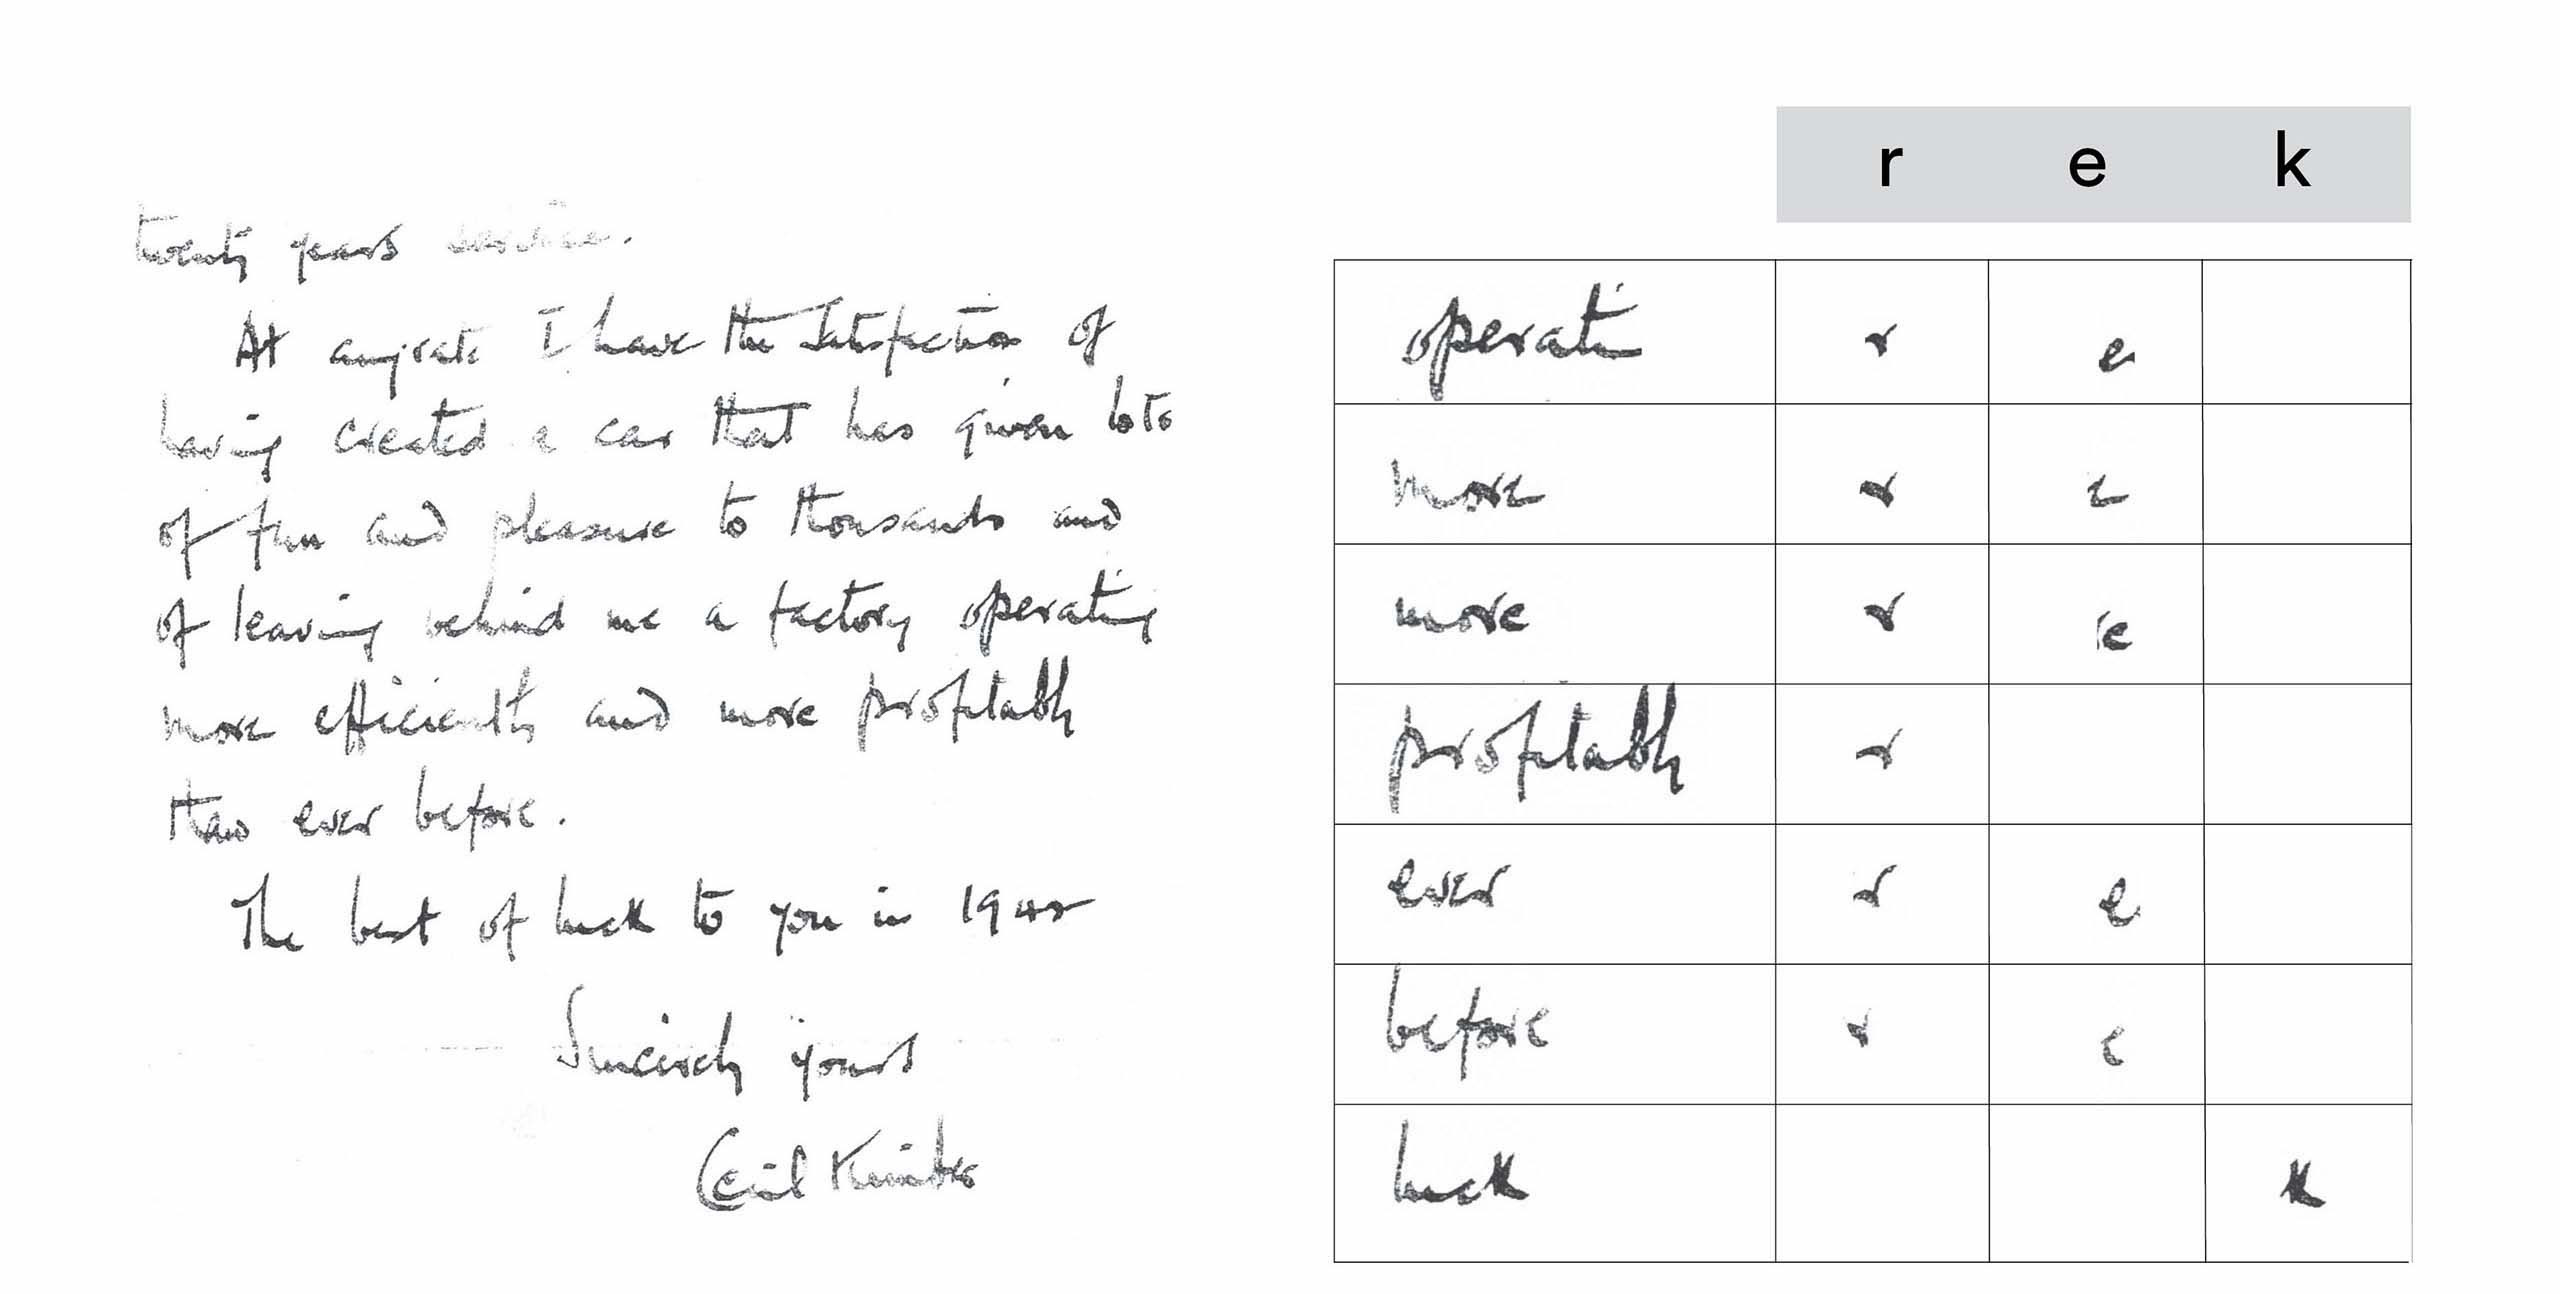 twenty years service.
At anyrate I have the Satisfaction of
having created a car that has given lots
of fun and pleasure to thousands and
of leaving behind me a factory operating
more efficiently and more profitable
than ever before.
The best of luck to you in 1942
Sincerely yours
Cecil Kimber
r e k
operati r e
more r e
more r e
profitable r
ever r e
before r e
luck k